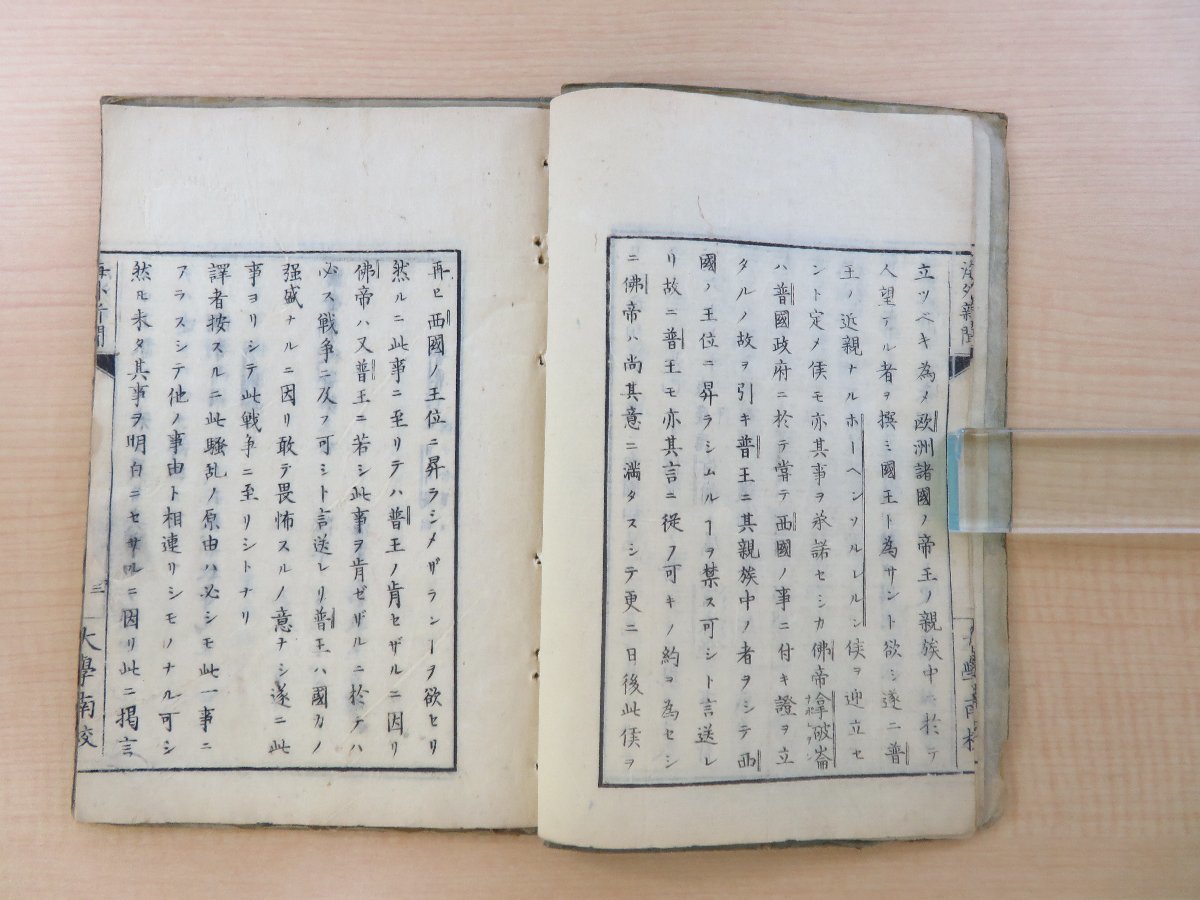 立ツベキ為メ歐洲諸國ノ帝王ノ親族中ニ於テ
人望アル者ヲ撰ミ國王ト為サント欲シ遂ニ普
王ノ近親ナルホーヘンソルレルン侯ヲ迎立セ
ント定メ侯モ亦其事ヲ承諾セシカ佛帝拿破崙
ハ普國政府ニ於テ嘗テ西國ノ事ニ付キ證ヲ立
タルノ故ヲ引キ普王ニ其親族中ノ者ヲシテ西
國ノ王位ニ昇ラシムルヿヲ禁ス可シト言送レ
リ故ニ普王モ亦其言ニ從フ可キノ約ヲ為セシ
ニ佛帝ハ尚其意ニ満タスシテ更ニ日後此侯ヲ
海外新聞
大學南校
再ヒ西國ノ王位ニ昇ラシメザランヿヲ欲セリ
然ルニ此事ニ至リテハ普王ノ肯セザルニ因リ
佛帝ハ又普王ニ若シ此事ヲ肯ゼザルニ於テハ
必ス戦争ニ及フ可シト言送レリ普王ハ國力ノ
强盛ナルニ因リ敢テ畏怖スルノ意ナシ遂ニ此
事ヨリシテ此戦争ニ至リシトナリ
譯者按スルニ此騒乱ノ原由ハ必シモ此一事ニ
アラスシテ他ノ事由ト相連リシモノナル可シ
然ㇳモ未タ其事ヲ明白ニセサルニ因リ此ニ掲言
海外新聞
三
大學南校